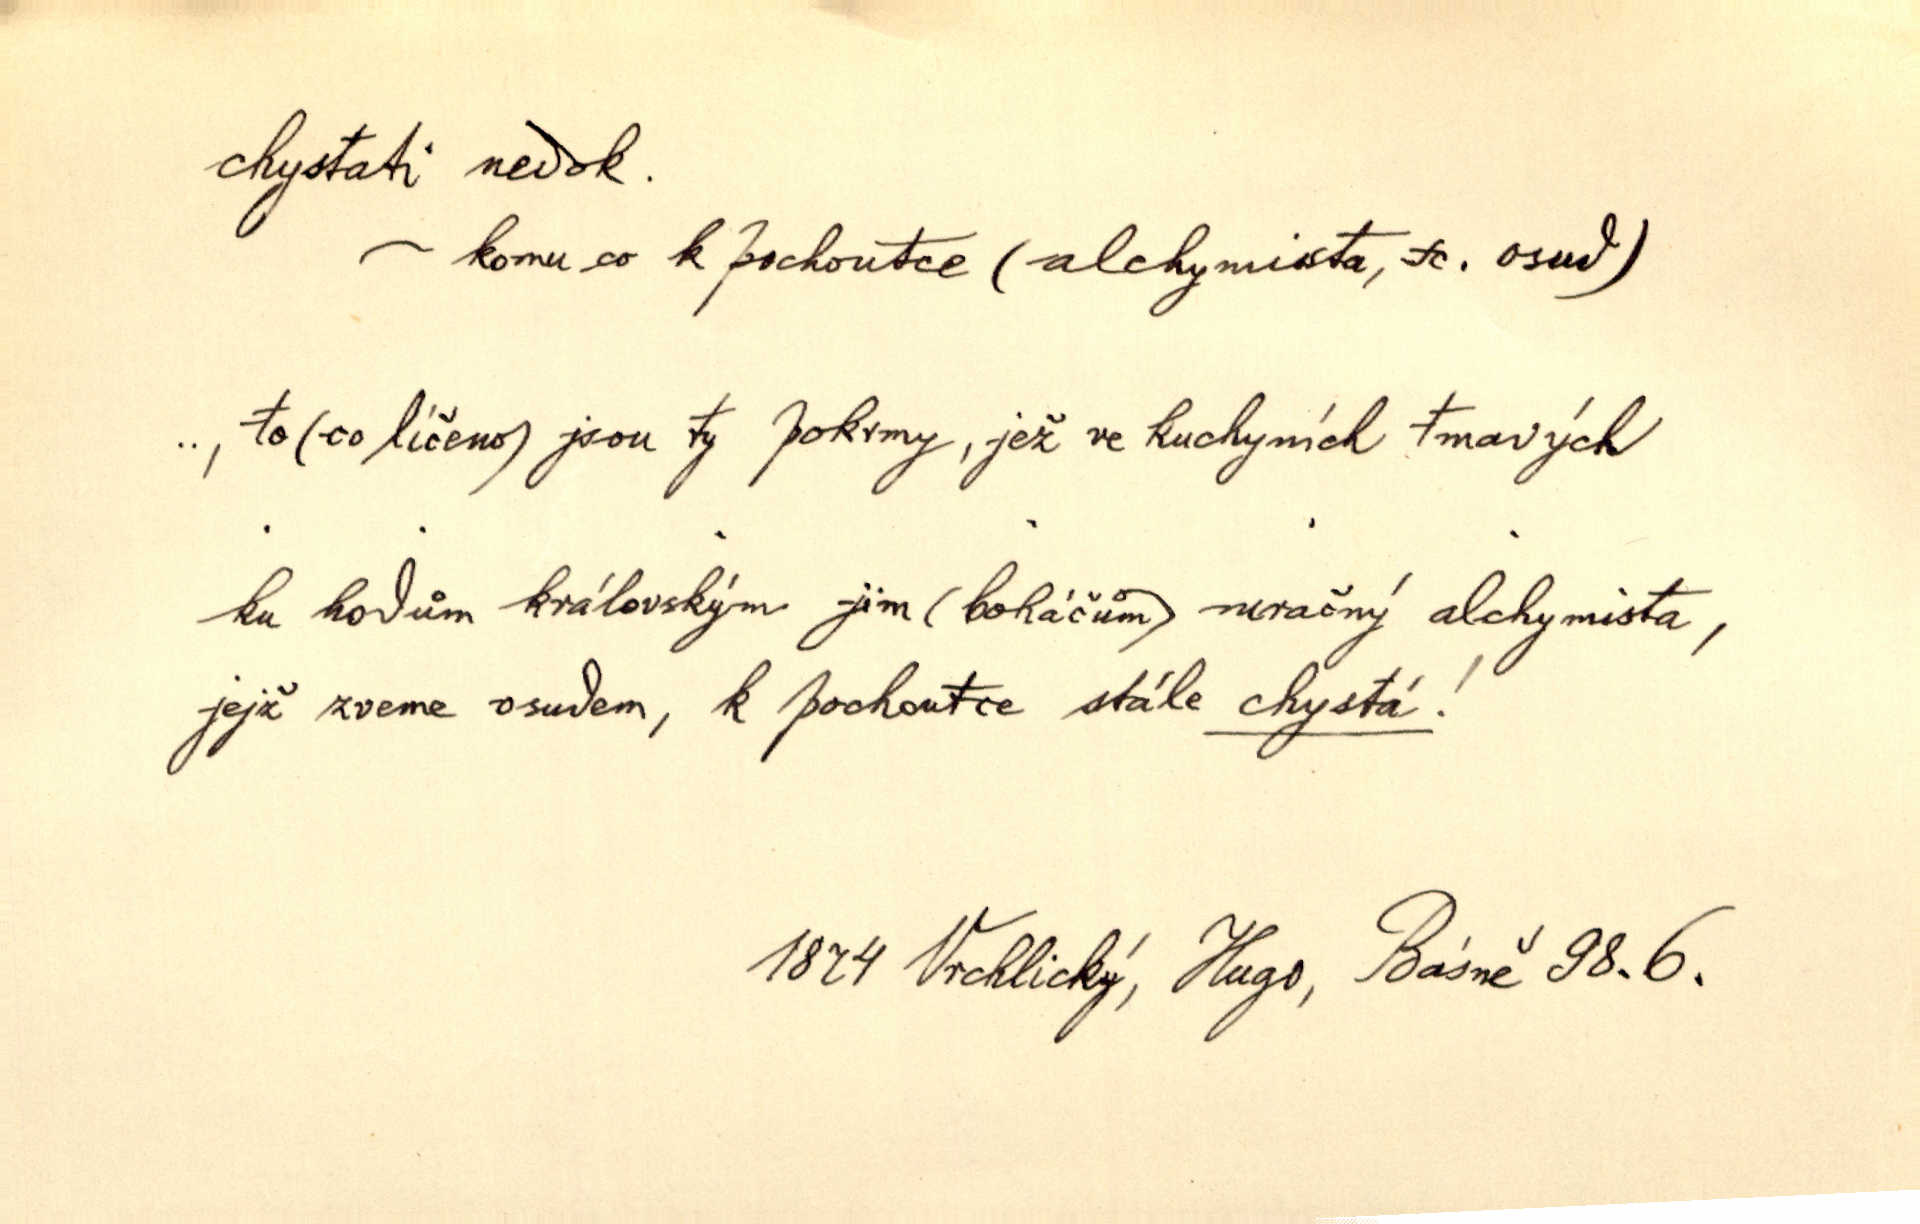 chystati nedok.
~ komu co k pochoutce (alchymista, tc. osud)
.., to (co líčeno) jsou ty pokrmy, jež ve kuchyních tmavých
. . . . . .
ku hodům královským jim (boháčům) mračný alchymista,
jejž zveme osudem, k pochoutce stále chystá!
1874 Vrchlický, Hugo, Básně 98. 6.